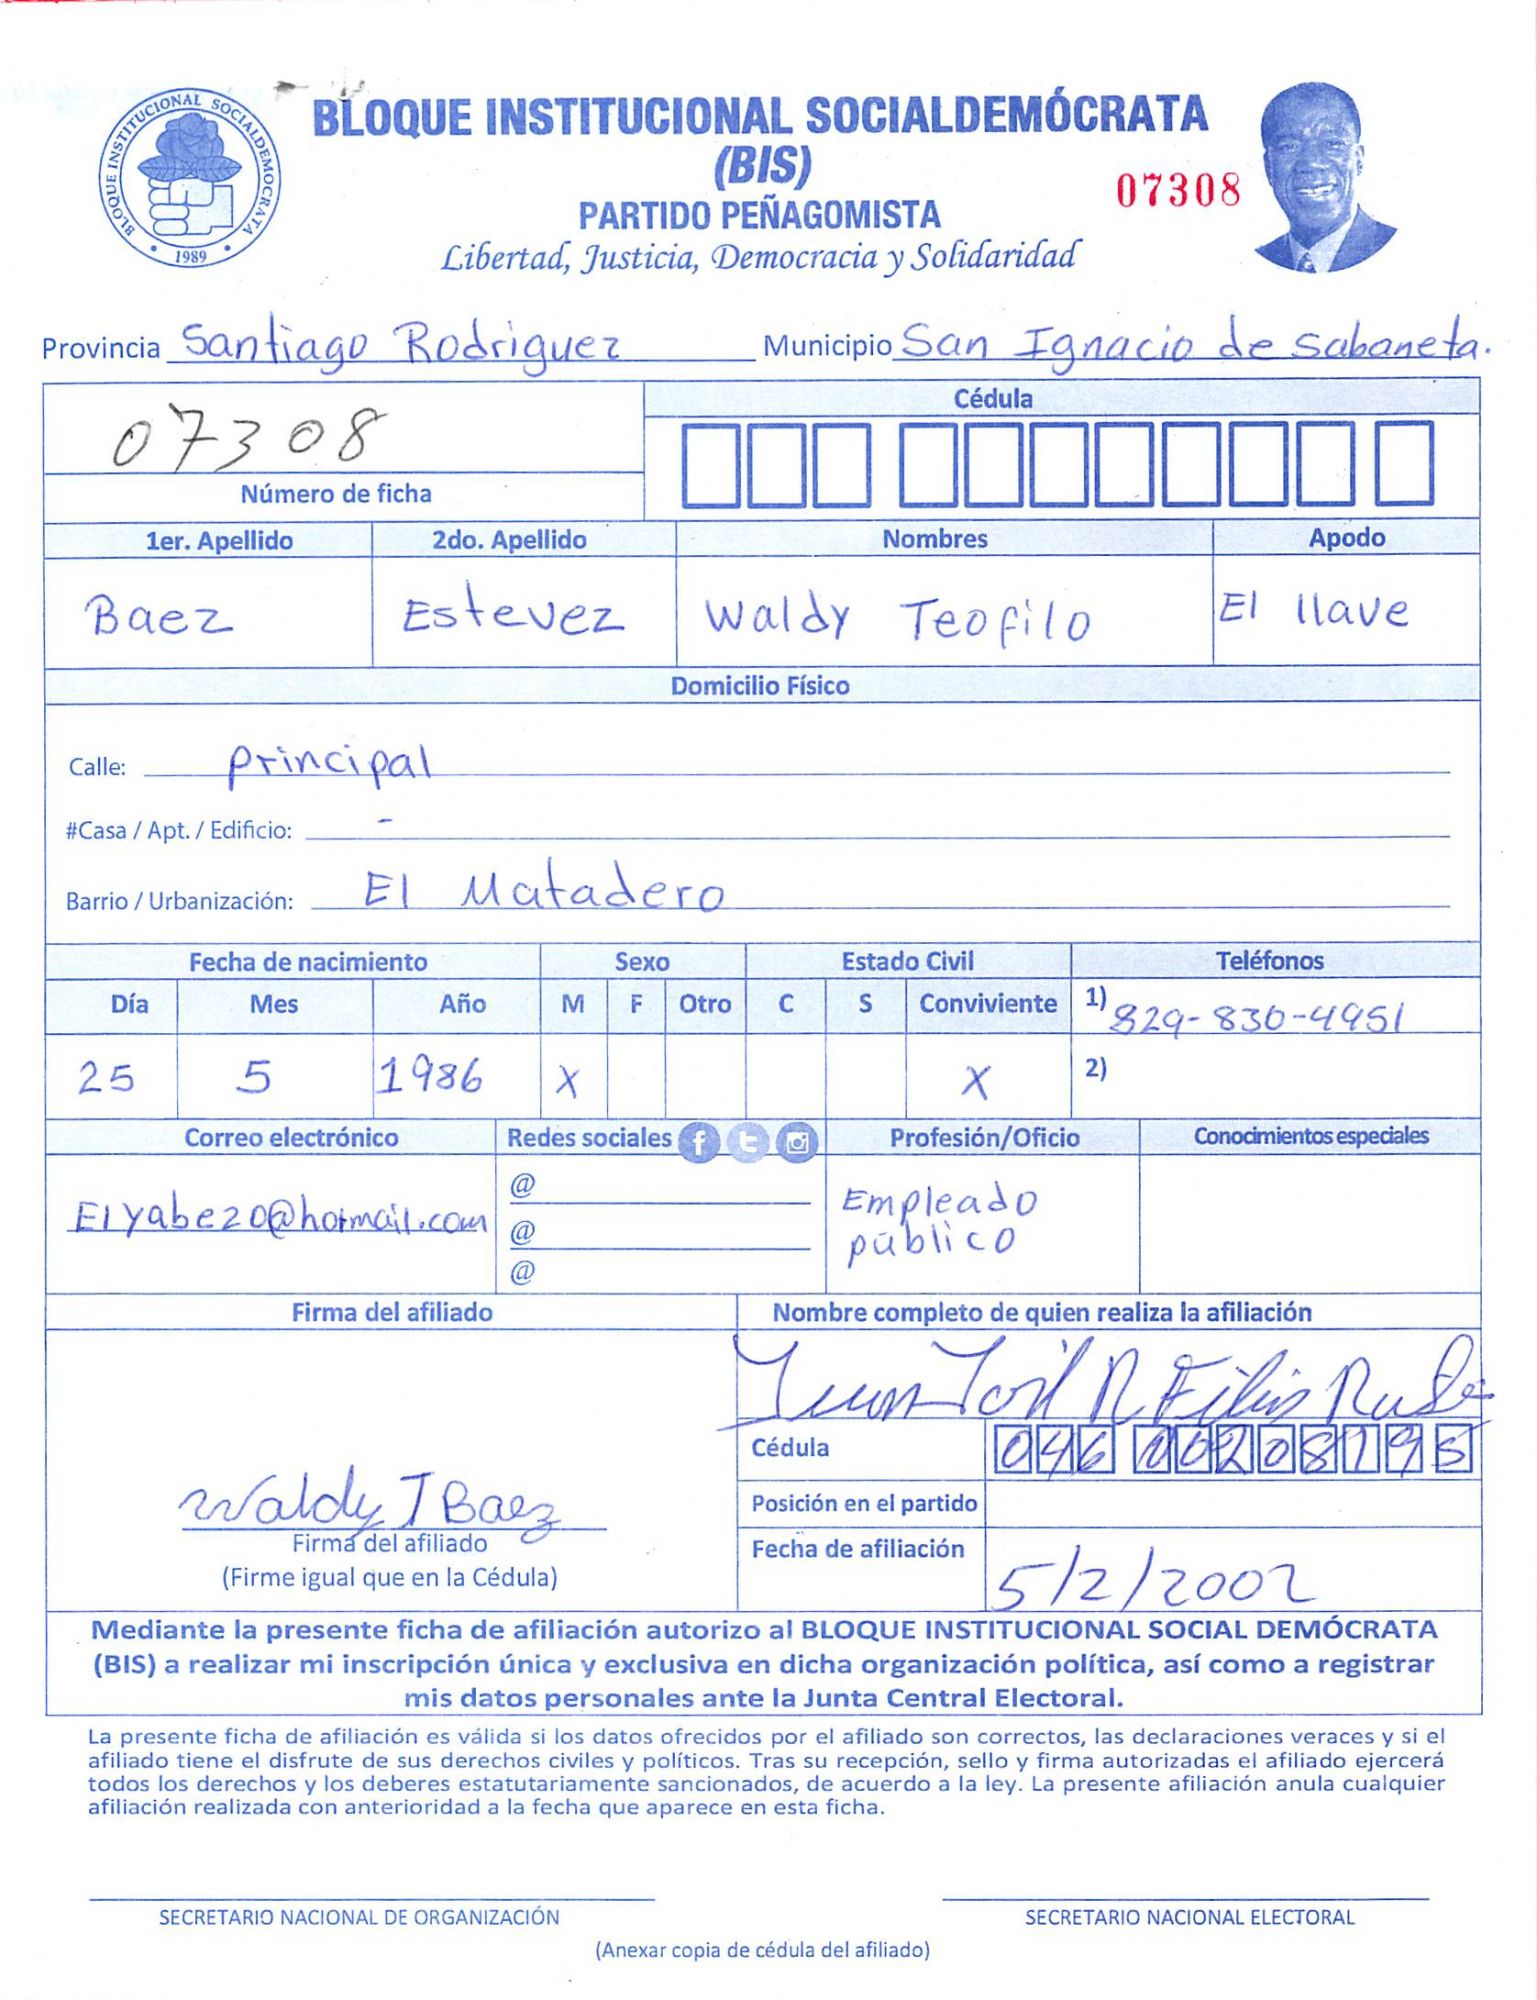 BLOQUE INSTITUCIONAL SOCIALDEMOCRATA
1989
BLOQUE INSTITUCIONAL SOCIALDEMÓCRATA
(BIS)
07308
PARTIDO PEÑAGOMISTA
Libertad, Justicia, Democracia y Solidaridad
Provincia Santiago Rodriguez Municipio San Ignacio de Sabaneta.
07308 Cédula
Número de ficha
1er. Apellido 2do. Apellido Nombres Apodo
Baez Estevez Waldy Teofilo El llave
Domicilio Físico
Calle: Principal
#Casa / Apt. / Edificio: -
Barrio / Urbanización: El Matadero
Fecha de nacimiento Sexo Estado Civil Teléfonos
Día Mes Año M F Otro C S Conviviente 1) 829-830-4951
25 5 1986 X X 2)
Correo electrónico Redes sociales Profesión/Oficio Conocimientos especiales
Elyabe20@hotmail.com @ Empleado
@ público
@
Firma del afiliado Nombre completo de quien realiza la afiliación
Cédula
Waldy T Baez Posición en el partido
Firma del afiliado Fecha de afiliación 5/2/2002
(Firme igual que en la Cédula)
Mediante la presente ficha de afiliación autorizo al BLOQUE INSTITUCIONAL SOCIAL DEMÓCRATA
(BIS) a realizar mi inscripción única y exclusiva en dicha organización política, así como a registrar
mis datos personales ante la Junta Central Electoral.
La presente ficha de afiliación es válida si los datos ofrecidos por el afiliado son correctos, las declaraciones veraces y si el
afiliado tiene el disfrute de sus derechos civiles y políticos. Tras su recepción, sello y firma autorizadas el afiliado ejercerá
todos los derechos y los deberes estatutariamente sancionados, de acuerdo a la ley. La presente afiliación anula cualquier
afiliación realizada con anterioridad a la fecha que aparece en esta ficha.
SECRETARIO NACIONAL DE ORGANIZACIÓN SECRETARIO NACIONAL ELECTORAL
(Anexar copia de cédula del afiliado)